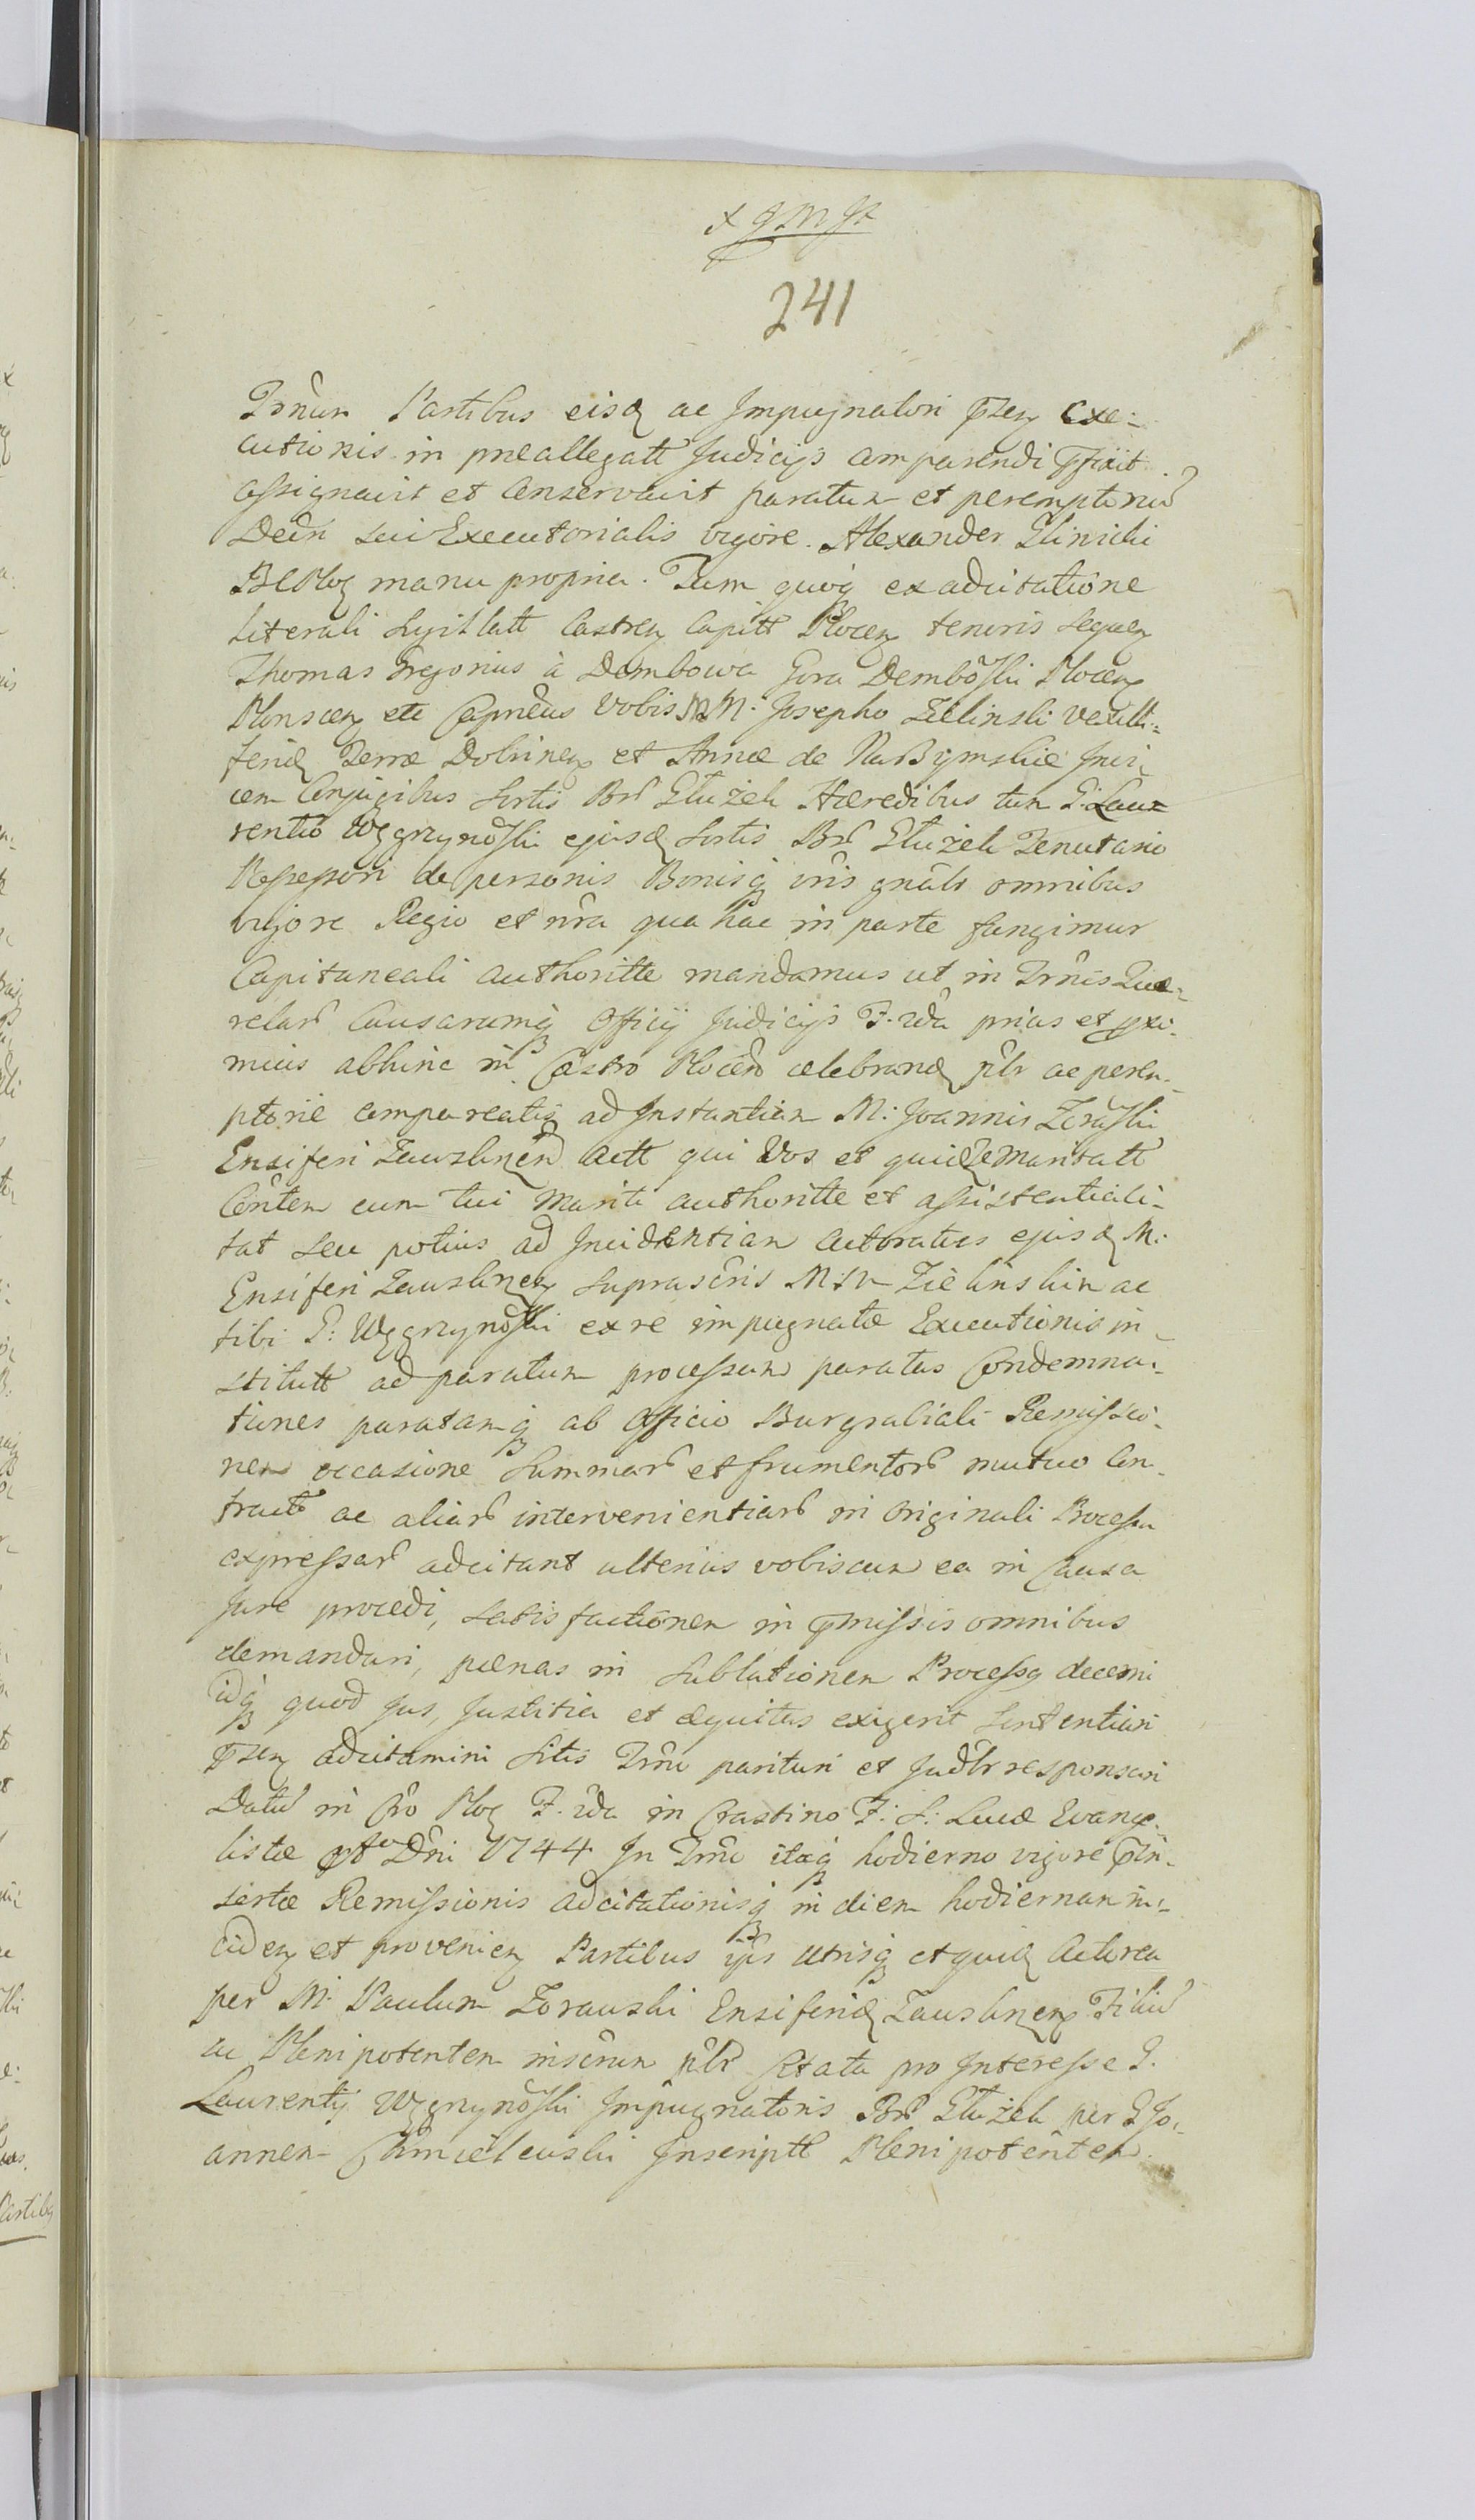 241
Trnum Partibus eisq ac Impugnatori pñtis Exe-
cutionis in præallegatt Judicijs comparendi pfixit
assignavit et conservavit paratum et peremptoriũ
Decrti sui Executorialis vigore. Alexander Glinicki
BCPloc manu propria. Tum quoq ex adcitatione
literali sigillatt Castren Capitt Plocen tenoris sequen
Thomas Gregorius à Dembowa Gora Dembõski Plocen
Plonscen etc Capneus Vobis MM. Josepho Zielinski Vexilli-
feridæ Terræ Dobrinen et Annæ de Nasszymskie Invi
cem Conjugibus sortis Bnr Głużek Hæredibus tum G. Lau-
rentio Węgrzynõski ejusd sortis Bnr Głużek Tenutario
Possessori de personis Bonisq vris gnalr omnibus
vigore Regia et nra qua hac in parte fungimur
Capitaneali authoritte mandamus ut in Trnis Que-
relar Causarumq Officij Judicijs F. 2da prius et proxi-
mius abhinc in Castro Plocen celebrand pltr ac perem-
ptorie compareatis ad Instantiam M: Joannis Zorãski
Ensiferi Zawskrzen Actt qui Vos et quid Te Maritatt
Consten cum tui Mariti authoritte et assistentiali-
tat seu potius ad Incidentiam Actoratus ejusd M.
Ensiferi Zawskrzen suprascris MM Zielinskim ac
tibi G: Węgrzynõski ex re impugnatæ Executionis in-
stitutt ad paratum processum paratas Condemna-
tiones paratamq ab Officio Burgrabiali Remissio-
nem occasione summar et frumentor mutuo Con-
tract ac aliar intervenientiar in Originali Processu
expressar adcitant ulterius vobiscum ea in Causa
Jure procedi, satisfactionem in pmissis omnibus
demandari, pænas in sublationem Processq decerni
idq quod Jus, Justitia et æquitas exigerit sententiari
pñtis adcitamini sitis Trno parituri et Judlr responsuri
Datũ in Cro Ploc F. 2da in Crastino F. S: Lucæ Evange-
listæ Dñi 1744 In Trno itaq hodierno vigore pin-
sertæ Remissionis adcitationisq in diem hodiernam in-
ciden et provenien Partibus ipis utrisq et quid Actorea
per M. Paulum Zorauski Ensiferid Zauskrzen Filiũ
ac Plenipotentem inscrum pltr Citata pro Interesse G.
Laurentij Węgrzynõski Impugnatoris Bnr Głużek per G Jo-
annem Chmieleuski Inscriptt Plenipotentem.